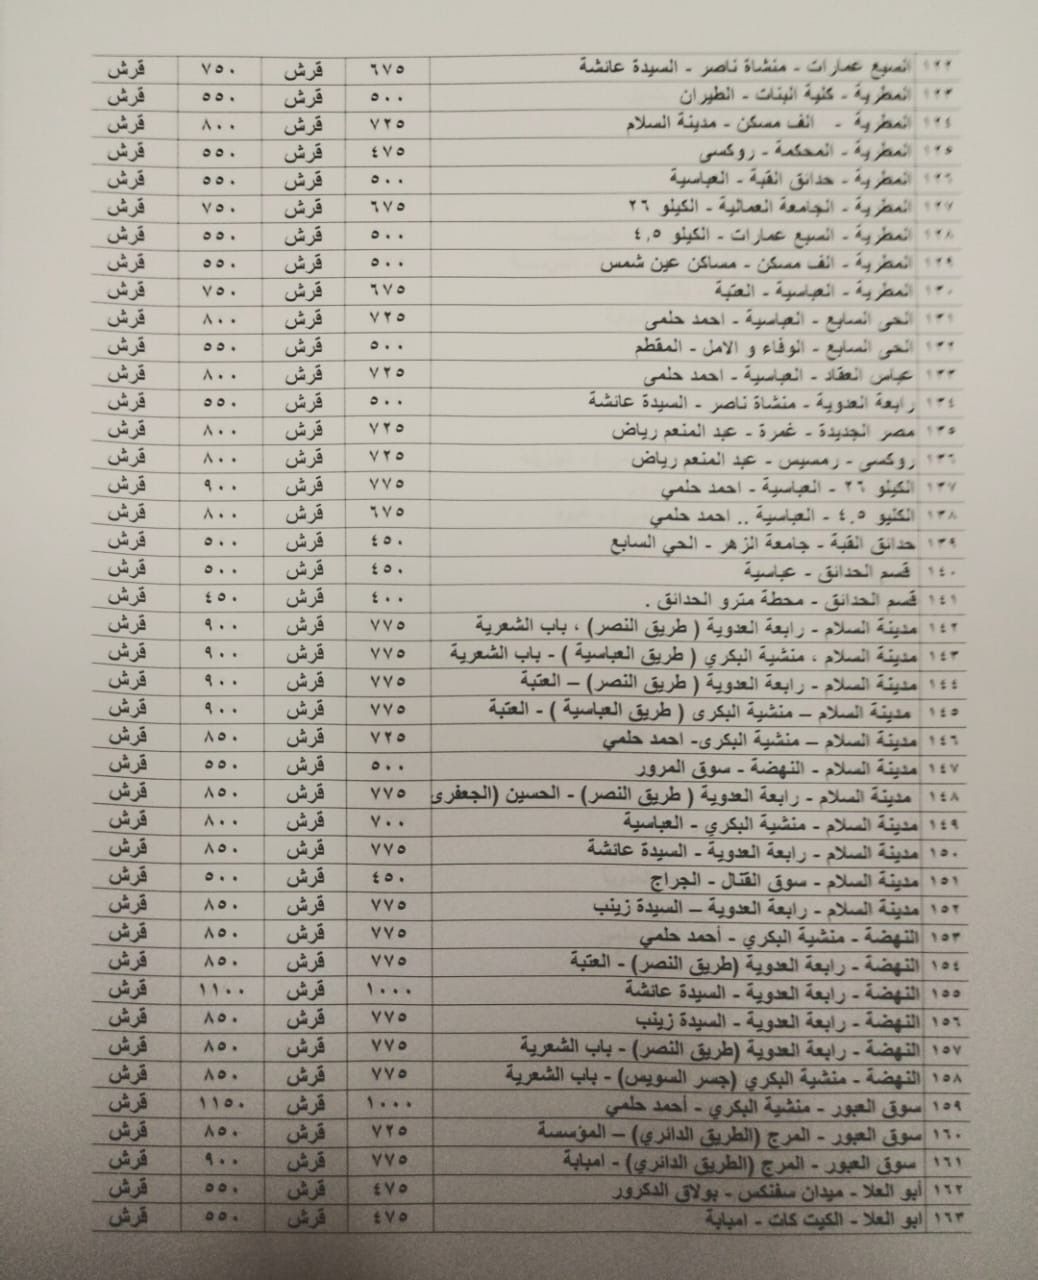 ١٢٢ السبع عمارات - منشاة ناصر - السيدة عائشة ٦٧٥ قرش ٧٥٠ قرش
١٢٣ المطرية - كلية البنات - الطيران ٥٠٠ قرش ٥٥٠ قرش
١٢٤ المطرية - الف مسكن - مدينة السلام ٧٢٥ قرش ٨٠٠ قرش
١٢٥ المطرية - المحكمة - روكسى ٤٧٥ قرش ٥٥٠ قرش
١٢٦ المطرية - حدائق القبة - العباسية ٥٠٠ قرش ٥٥٠ قرش
١٢٧ المطرية - الجامعة العمالية - الكيلو ٢٦ ٦٧٥ قرش ٧٥٠ قرش
١٢٨ المطرية - السبع عمارات - الكيلو ٤,٥ ٥٠٠ قرش ٥٥٠ قرش
١٢٩ المطرية - الف مسكن - مساكن عين شمس ٥٠٠ قرش ٥٥٠ قرش
١٣٠ المطرية - العباسية - العتبة ٦٧٥ قرش ٧٥٠ قرش
١٣١ الحى السابع - العباسية - احمد حلمى ٧٢٥ قرش ٨٠٠ قرش
١٣٢ الحى السابع - الوفاء و الامل - المقطم ٥٠٠ قرش ٥٥٠ قرش
١٣٣ عباس العقاد - العباسية - احمد حلمى ٧٢٥ قرش ٨٠٠ قرش
١٣٤ رابعة العدوية - منشاة ناصر - السيدة عائشة ٥٠٠ قرش ٥٥٠ قرش
١٣٥ مصر الجديدة - غمرة - عبد المنعم رياض ٧٢٥ قرش ٨٠٠ قرش
١٣٦ روكسى - رمسيس - عبد المنعم رياض ٧٢٥ قرش ٨٠٠ قرش
١٣٧ الكيلو ٢٦ - العباسية - احمد حلمي ٧٧٥ قرش ٩٠٠ قرش
١٣٨ الكليو ٤,٥ - العباسية .. احمد حلمي ٦٧٥ قرش ٨٠٠ قرش
١٣٩ حدائق القبة - جامعة الزهر - الحي السابع ٤٥٠ قرش ٥٠٠ قرش
١٤٠ قسم الحدائق - عباسية ٤٥٠ قرش ٥٠٠ قرش
١٤١ قسم الحدائق - محطة مترو الحدائق . ٤٠٠ قرش ٤٥٠ قرش
١٤٢ مدينة السلام - رابعة العدوية ( طريق النصر) ، باب الشعرية ٧٧٥ قرش ٩٠٠ قرش
١٤٣ مدينة السلام ، منشية البكري ( طريق العباسية ) - باب الشعرية ٧٧٥ قرش ٩٠٠ قرش
١٤٤ مدينة السلام - رابعة العدوية ( طريق النصر) – العتبة ٧٧٥ قرش ٩٠٠ قرش
١٤٥ مدينة السلام – منشية البكرى ( طريق العباسية ) - العتبة ٧٧٥ قرش ٩٠٠ قرش
١٤٦ مدينة السلام – منشية البكرى- احمد حلمي ٧٢٥ قرش ٨٥٠ قرش
١٤٧ مدينة السلام - النهضة - سوق المرور ٥٠٠ قرش ٥٥٠ قرش
١٤٨ مدينة السلام - رابعة العدوية ( طريق النصر) - الحسين (الجعفرى ٧٧٥ قرش ٨٥٠ قرش
١٤٩ مدينة السلام - منشية البكري - العباسية ٧٠٠ قرش ٨٠٠ قرش
١٥٠ مدينة السلام - رابعة العدوية - السيدة عائشة ٧٧٥ قرش ٨٥٠ قرش
١٥١ مدينة السلام - سوق القنال - الجراج ٤٥٠ قرش ٥٠٠ قرش
١٥٢ مدينة السلام - رابعة العدوية – السيدة زينب ٧٧٥ قرش ٨٥٠ قرش
١٥٣ النهضة - منشية البكري - أحمد حلمي ٧٧٥ قرش ٨٥٠ قرش
١٥٤ النهضة - رابعة العدوية (طريق النصر) - العتبة ٧٧٥ قرش ٨٥٠ قرش
١٥٥ النهضة - رابعة العدوية - السيدة عائشة ١٠٠٠ قرش ١١٠٠ قرش
١٥٦ النهضة - رابعة العدوية - السيدة زينب ٧٧٥ قرش ٨٥٠ قرش
١٥٧ النهضة - رابعة العدوية (طريق النصر) - باب الشعرية ٧٧٥ قرش ٨٥٠ قرش
١٥٨ النهضة - منشية البكري (جسر السويس) - باب الشعرية ٧٧٥ قرش ٨٥٠ قرش
١٥٩ سوق العبور - منشية البكري - أحمد حلمي ١٠٠٠ قرش ١١٥٠ قرش
١٦٠ سوق العبور - المرج (الطريق الدائري) – المؤسسة ٧٢٥ قرش ٨٥٠ قرش
١٦١ سوق العبور - المرج (الطريق الدائري) - امبابة ٧٧٥ قرش ٩٠٠ قرش
١٦٢ أبو العلا - ميدان سفنكس - بولاق الدكرور ٤٧٥ قرش ٥٥٠ قرش
١٦٣ ابو العلا - الكيت كات - امبابة ٤٧٥ قرش ٥٥٠ قرش